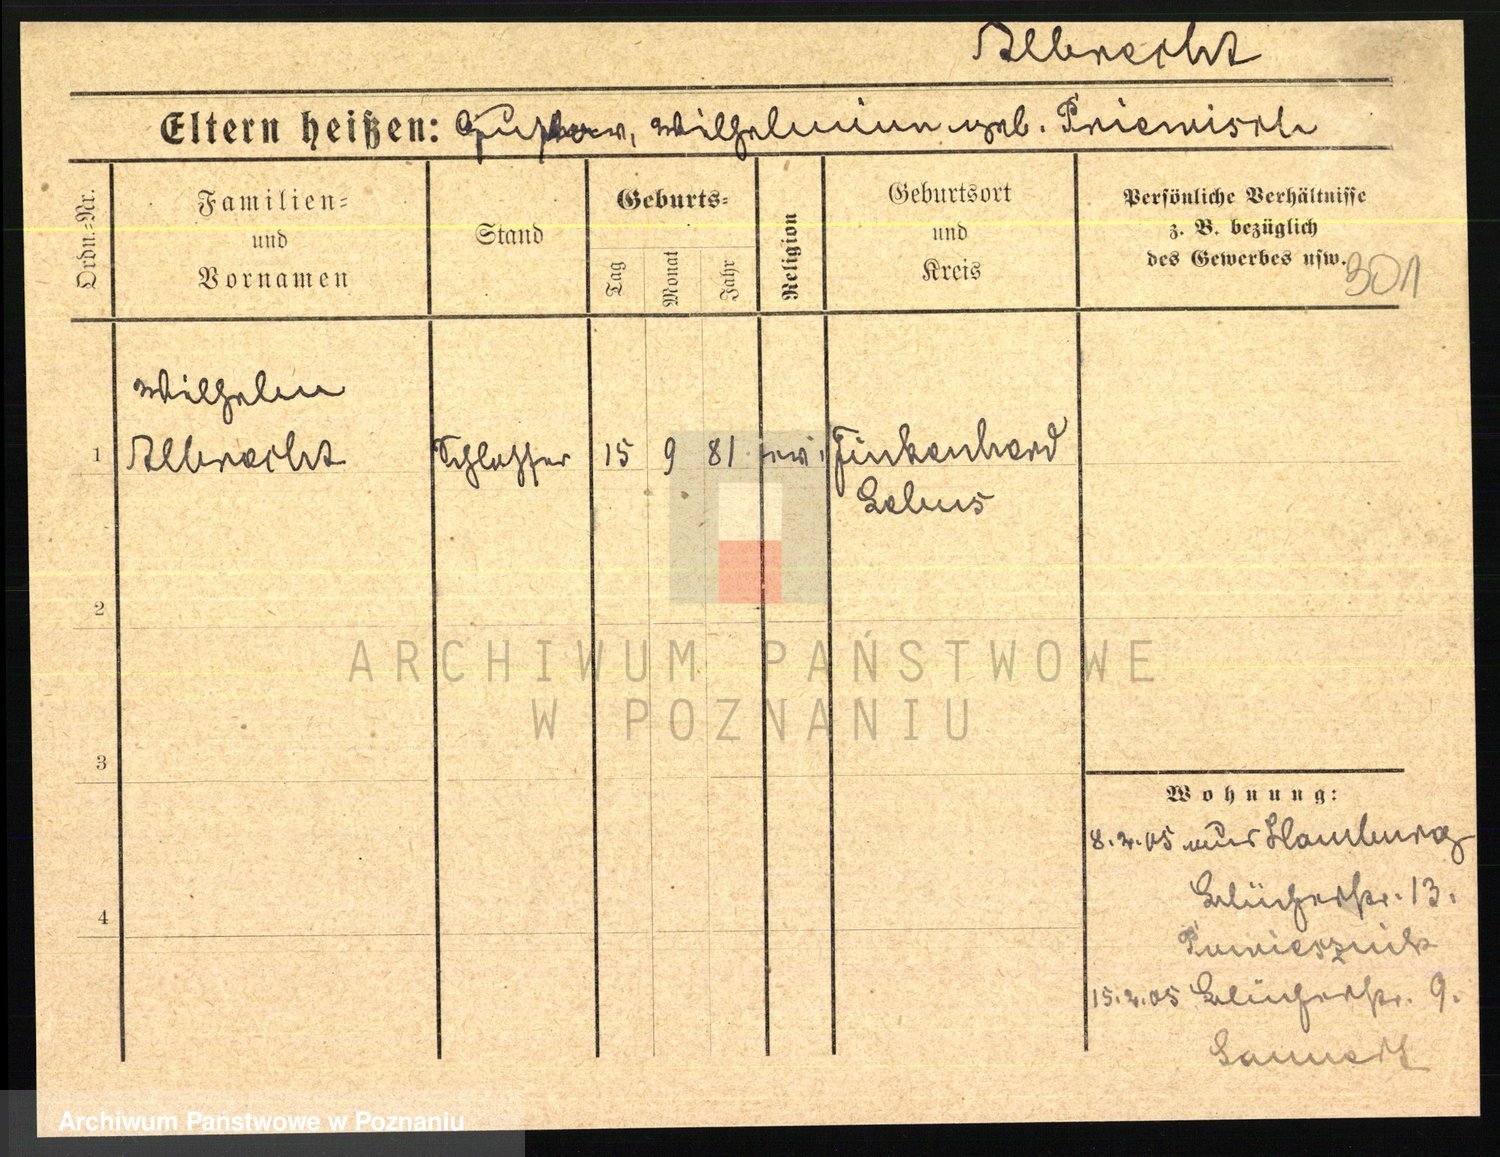 Albrecht
Eltern heißen: Gustav, Wilhelmine geb. Priemisch
Ordn.-Nr.
Familien-
und
Vornamen
Stand
Geburts-
Tag
Monat
Jahr
Religion
Geburtsort
und
Kreis
Persönliche Verhältnisse
z. B. bezüglich
des Gewerbes usw.
301
Wilhelm
1 Albrecht Schlosser 15 9 81 Finkenherd
Lebus
2
3
4
Wohnung:
8.2.05 aus Hamburg
Blücherstr. 13.
15.2.05 Blücherstr. 9.
ARCHIWUM PAŃSTWOWE
W POZNANIU
Archiwum Państwowe w Poznaniu